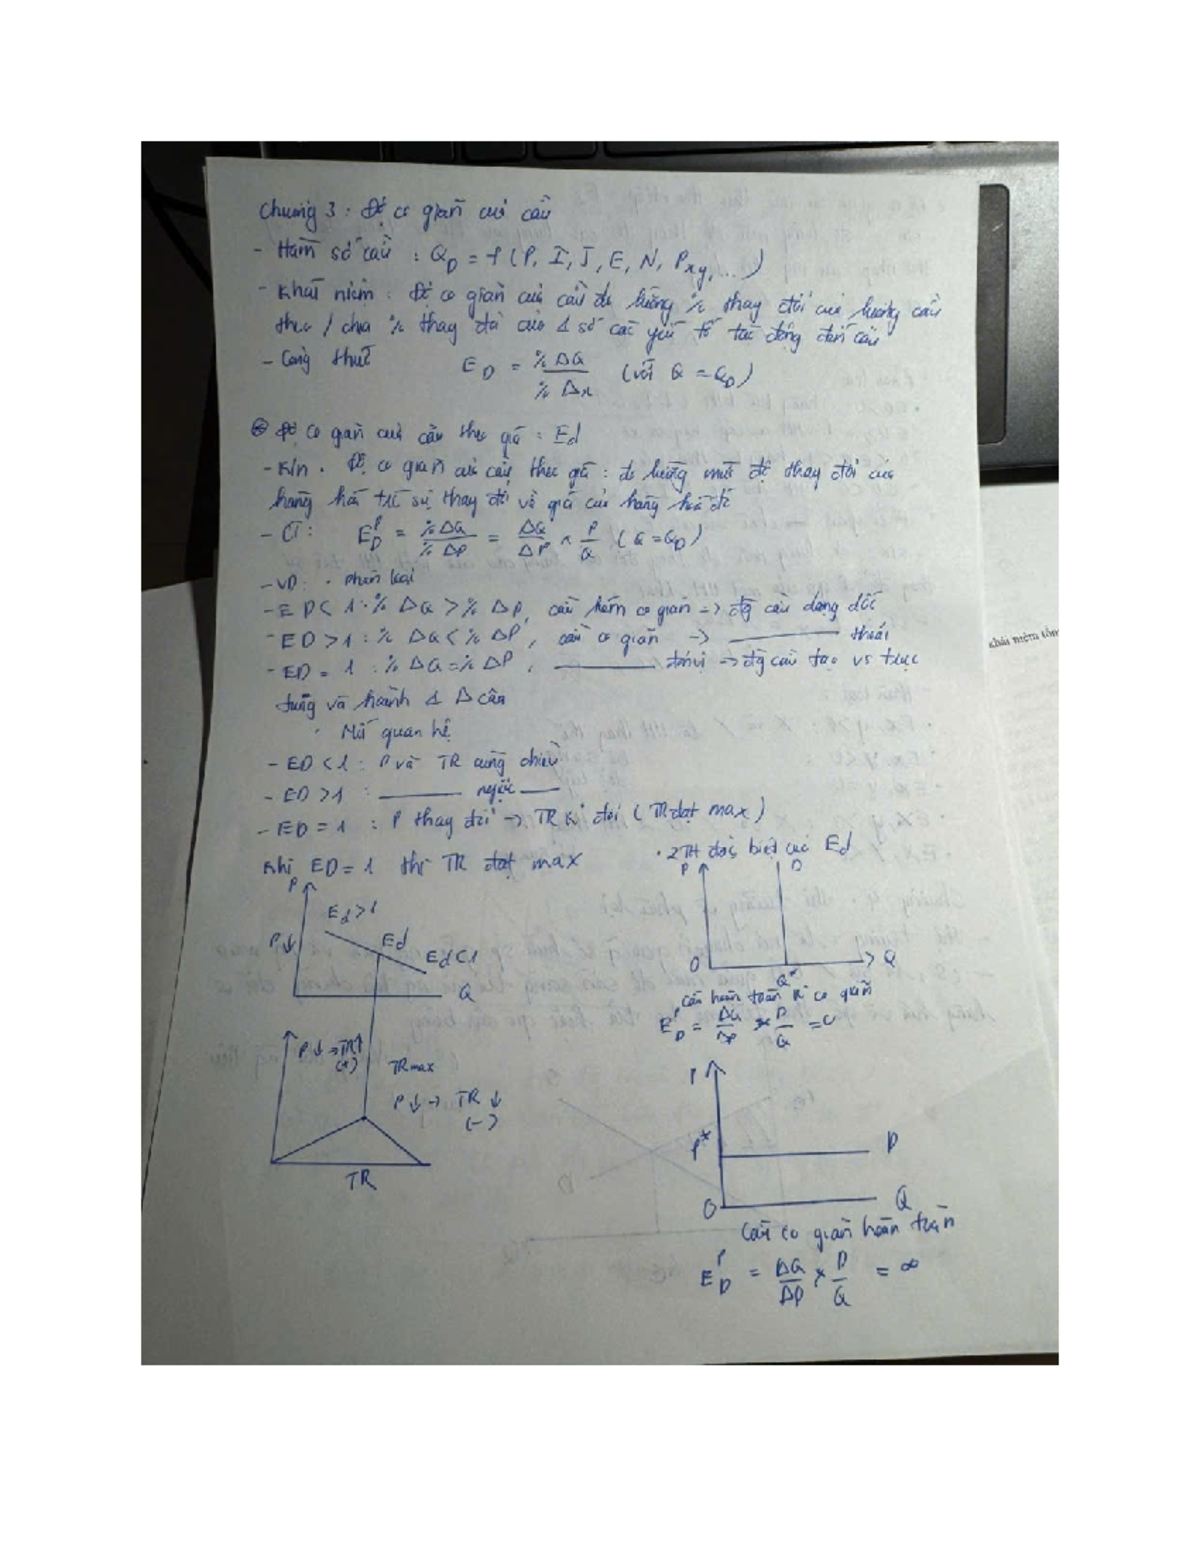 Chương 3: Độ co giãn của cầu
- Hàm số cầu : QD = f (P, I, J, E, N, Pxy, ...)
- Khái niệm : Độ co giãn của cầu đo lường % thay đổi của lượng cầu
theo / chia % thay đổi của 1 số các yếu tố tác động đến cầu
- Công thức ED = %ΔQ / %Δx (với Q = QD)
Độ co giãn của cầu theo giá : Ed
- K/n . Độ co giãn của cầu theo giá : đo lường mức độ thay đổi của
hàng hoá từ sự thay đổi về giá của hàng hoá đó
- CT: E^P_D = %ΔQ / %ΔP = ΔQ / ΔP x P / Q (Q = QD)
- VD: . Phân loại
- ED < 1 : % ΔQ > % ΔP, cầu kém co giãn -> đg cầu dạng dốc
- ED > 1 : % ΔQ < % ΔP , cầu co giãn -> thoải
- ED = 1 : % ΔQ = % ΔP , đơn vị -> đg cầu tạo vs trục
tung và hoành 1 Δ cân
. Mối quan hệ
- ED < 1 : P và TR cùng chiều
- ED > 1 : ngược
- ED = 1 : P thay đổi -> TR k đổi (TR đạt max)
Khi ED = 1 thì TR đạt max
. 2TH đặc biệt của Ed
P
Ed > 1
P↓
Ed
Ed < 1
Q
P↓ -> TR↑
(+)
TRmax
P↓ -> TR↓
(-)
TR
P
D
O
Q*
Q
Cầu hoàn toàn k co giãn
E^P_D = ΔQ / ΔP x P / Q = 0
P
P*
D
O
Q
Cầu co giãn hoàn toàn
E^P_D = ΔQ / ΔP x P / Q = ∞